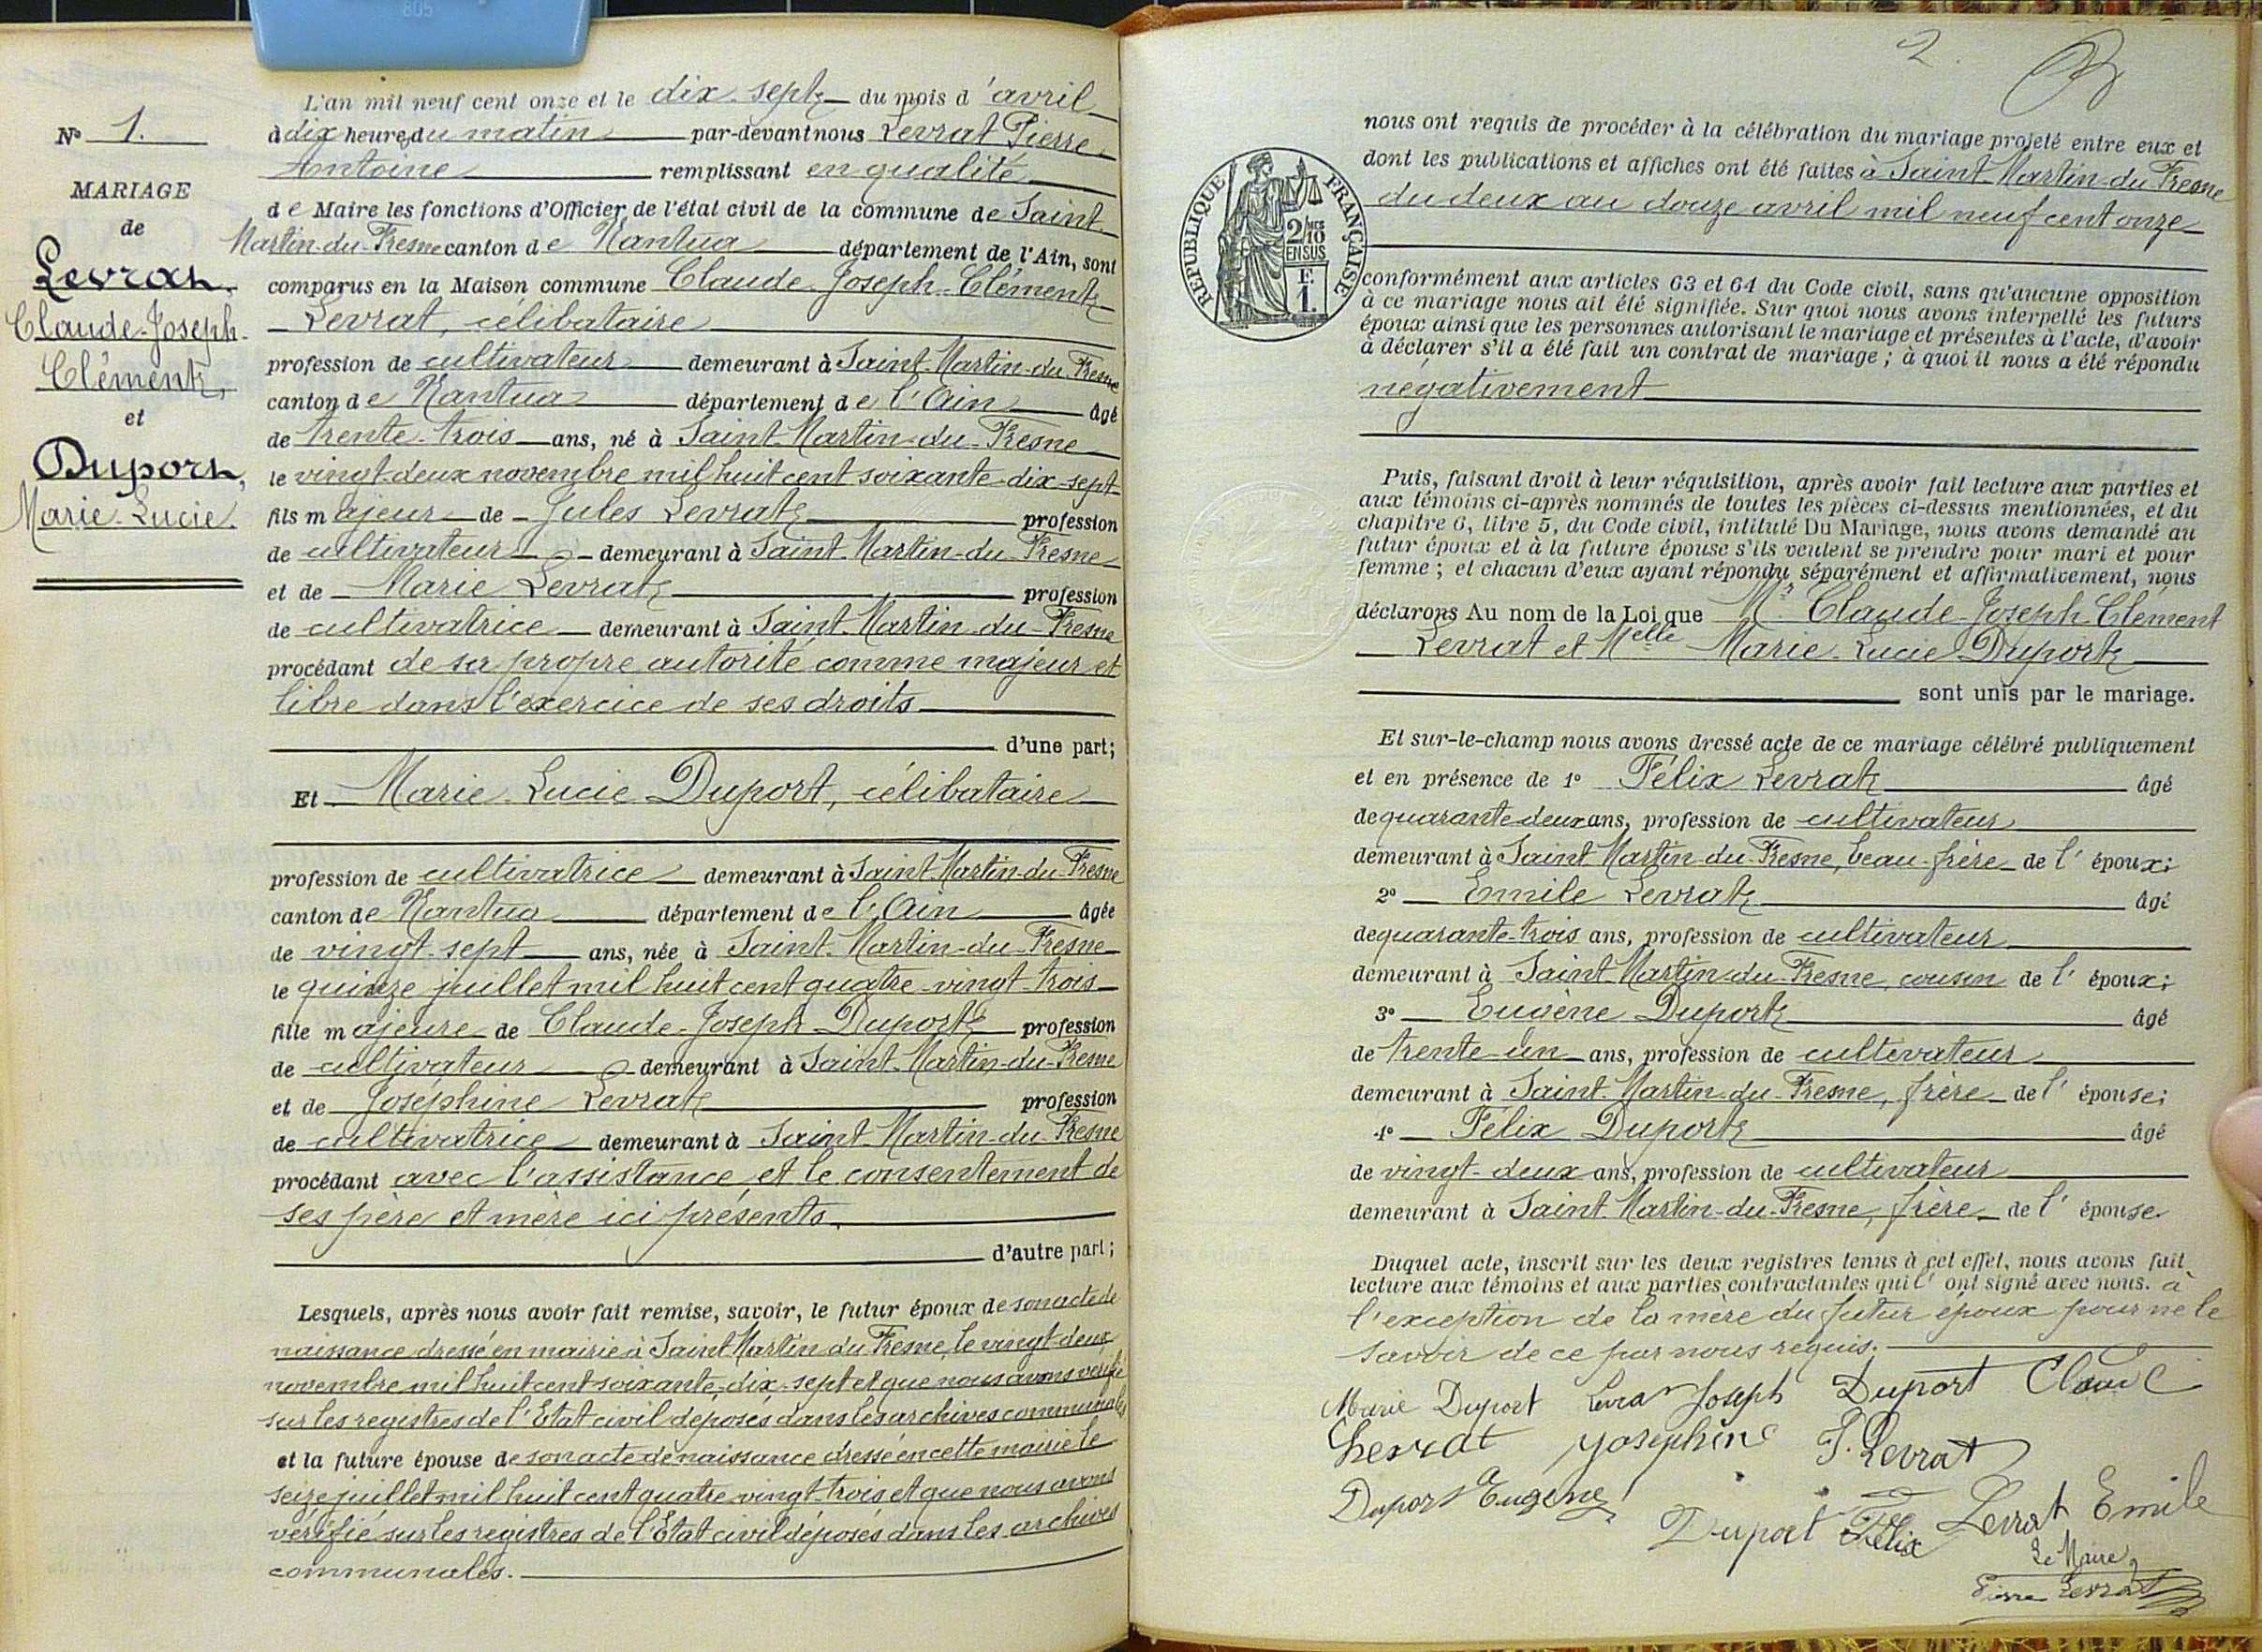 805
N° 1.
MARIAGE
de
Levrat,
Claude-Joseph-
Clément,
et
Duport,
Marie-Lucie.
L'an mil neuf cent onze et le dix-sept du mois d'avril
à dix heures du matin par-devant nous Levrat Pierre
Antoine remplissant en qualité
de Maire les fonctions d'Officier de l'état civil de la commune de Saint-
Martin-du-Fresne canton de Nantua département de l'Ain, sont
comparus en la Maison commune Claude-Joseph-Clément
Levrat, célibataire
profession de cultivateur demeurant à Saint-Martin-du-Fresne
canton de Nantua département de l'Ain âgé
de trente-trois ans, né à Saint-Martin-du-Fresne
le vingt-deux novembre mil huit cent soixante-dix-sept
fils majeur de Jules Levrat profession
de cultivateur demeurant à Saint-Martin-du-Fresne
et de Marie Levrat profession
de cultivatrice demeurant à Saint-Martin-du-Fresne
procédant de sa propre autorité comme majeur et
libre dans l'exercice de ses droits
d'une part;
Et Marie-Lucie Duport, célibataire
profession de cultivatrice demeurant à Saint-Martin-du-Fresne
canton de Nantua département de l'Ain âgée
de vingt-sept ans, née à Saint-Martin-du-Fresne
le quinze juillet mil huit cent quatre-vingt-trois
fille majeure de Claude-Joseph Duport profession
de cultivateur demeurant à Saint-Martin-du-Fresne
et de Joséphine Levrat profession
de cultivatrice demeurant à Saint-Martin-du-Fresne
procédant avec l'assistance et le consentement de
ses père et mère ici présents.
d'autre part;
Lesquels, après nous avoir fait remise, savoir, le futur époux de son acte de
naissance dressé en mairie à Saint Martin du Fresne, le vingt-deux
novembre mil huit cent soixante-dix-sept et que nous avons vérifié
sur les registres de l'Etat civil déposés dans les archives communales
et la future épouse de son acte de naissance dressé en cette mairie le
seize juillet mil huit cent quatre-vingt-trois et que nous avons
vérifié sur les registres de l'Etat civil déposés dans les archives
communales.
2.
RÉPUBLIQUE FRANÇAISE
2/10 MES
EN SUS
F.
1.
nous ont requis de procéder à la célébration du mariage projeté entre eux et
dont les publications et affiches ont été faites à Saint-Martin-du-Fresne
du deux au douze avril mil neuf cent onze
conformément aux articles 63 et 64 du Code civil, sans qu'aucune opposition
à ce mariage nous ait été signifiée. Sur quoi nous avons interpellé les futurs
époux ainsi que les personnes autorisant le mariage et présentes à l'acte, d'avoir
à déclarer s'il a été fait un contrat de mariage ; à quoi il nous a été répondu
négativement
Puis, faisant droit à leur réquisition, après avoir fait lecture aux parties et
aux témoins ci-après nommés de toutes les pièces ci-dessus mentionnées, et du
chapitre 6, titre 5, du Code civil, intitulé Du Mariage, nous avons demandé au
futur époux et à la future épouse s'ils veulent se prendre pour mari et pour
femme ; et chacun d'eux ayant répondu séparément et affirmativement, nous
déclarons Au nom de la Loi que Mr Claude-Joseph-Clément
Levrat et Melle Marie-Lucie Duport
sont unis par le mariage.
Et sur-le-champ nous avons dressé acte de ce mariage célébré publiquement
et en présence de 1° Félix Levrat âgé
de quarante-deux ans, profession de cultivateur
demeurant à Saint-Martin-du-Fresne, beau-frère de l'époux;
2° Emile Levrat âgé
de quarante-trois ans, profession de cultivateur
demeurant à Saint-Martin-du-Fresne, cousin de l'époux;
3° Eugène Duport âgé
de trente-un ans, profession de cultivateur
demeurant à Saint-Martin-du-Fresne, frère de l'épouse;
4° Félix Duport âgé
de vingt-deux ans, profession de cultivateur
demeurant à Saint-Martin-du-Fresne, frère de l'épouse
Duquel acte, inscrit sur les deux registres tenus à cet effet, nous avons fait
lecture aux témoins et aux parties contractantes qui l'ont signé avec nous. à
l'exception de la mère du futur époux pour ne le
savoir de ce par nous requis.
Marie Duport Levrat Joseph Duport Claude
Levrat Josephine F. Levrat
Duport Eugene
Duport Félix Levrat Emile
Le Maire,
Pierre Levrat